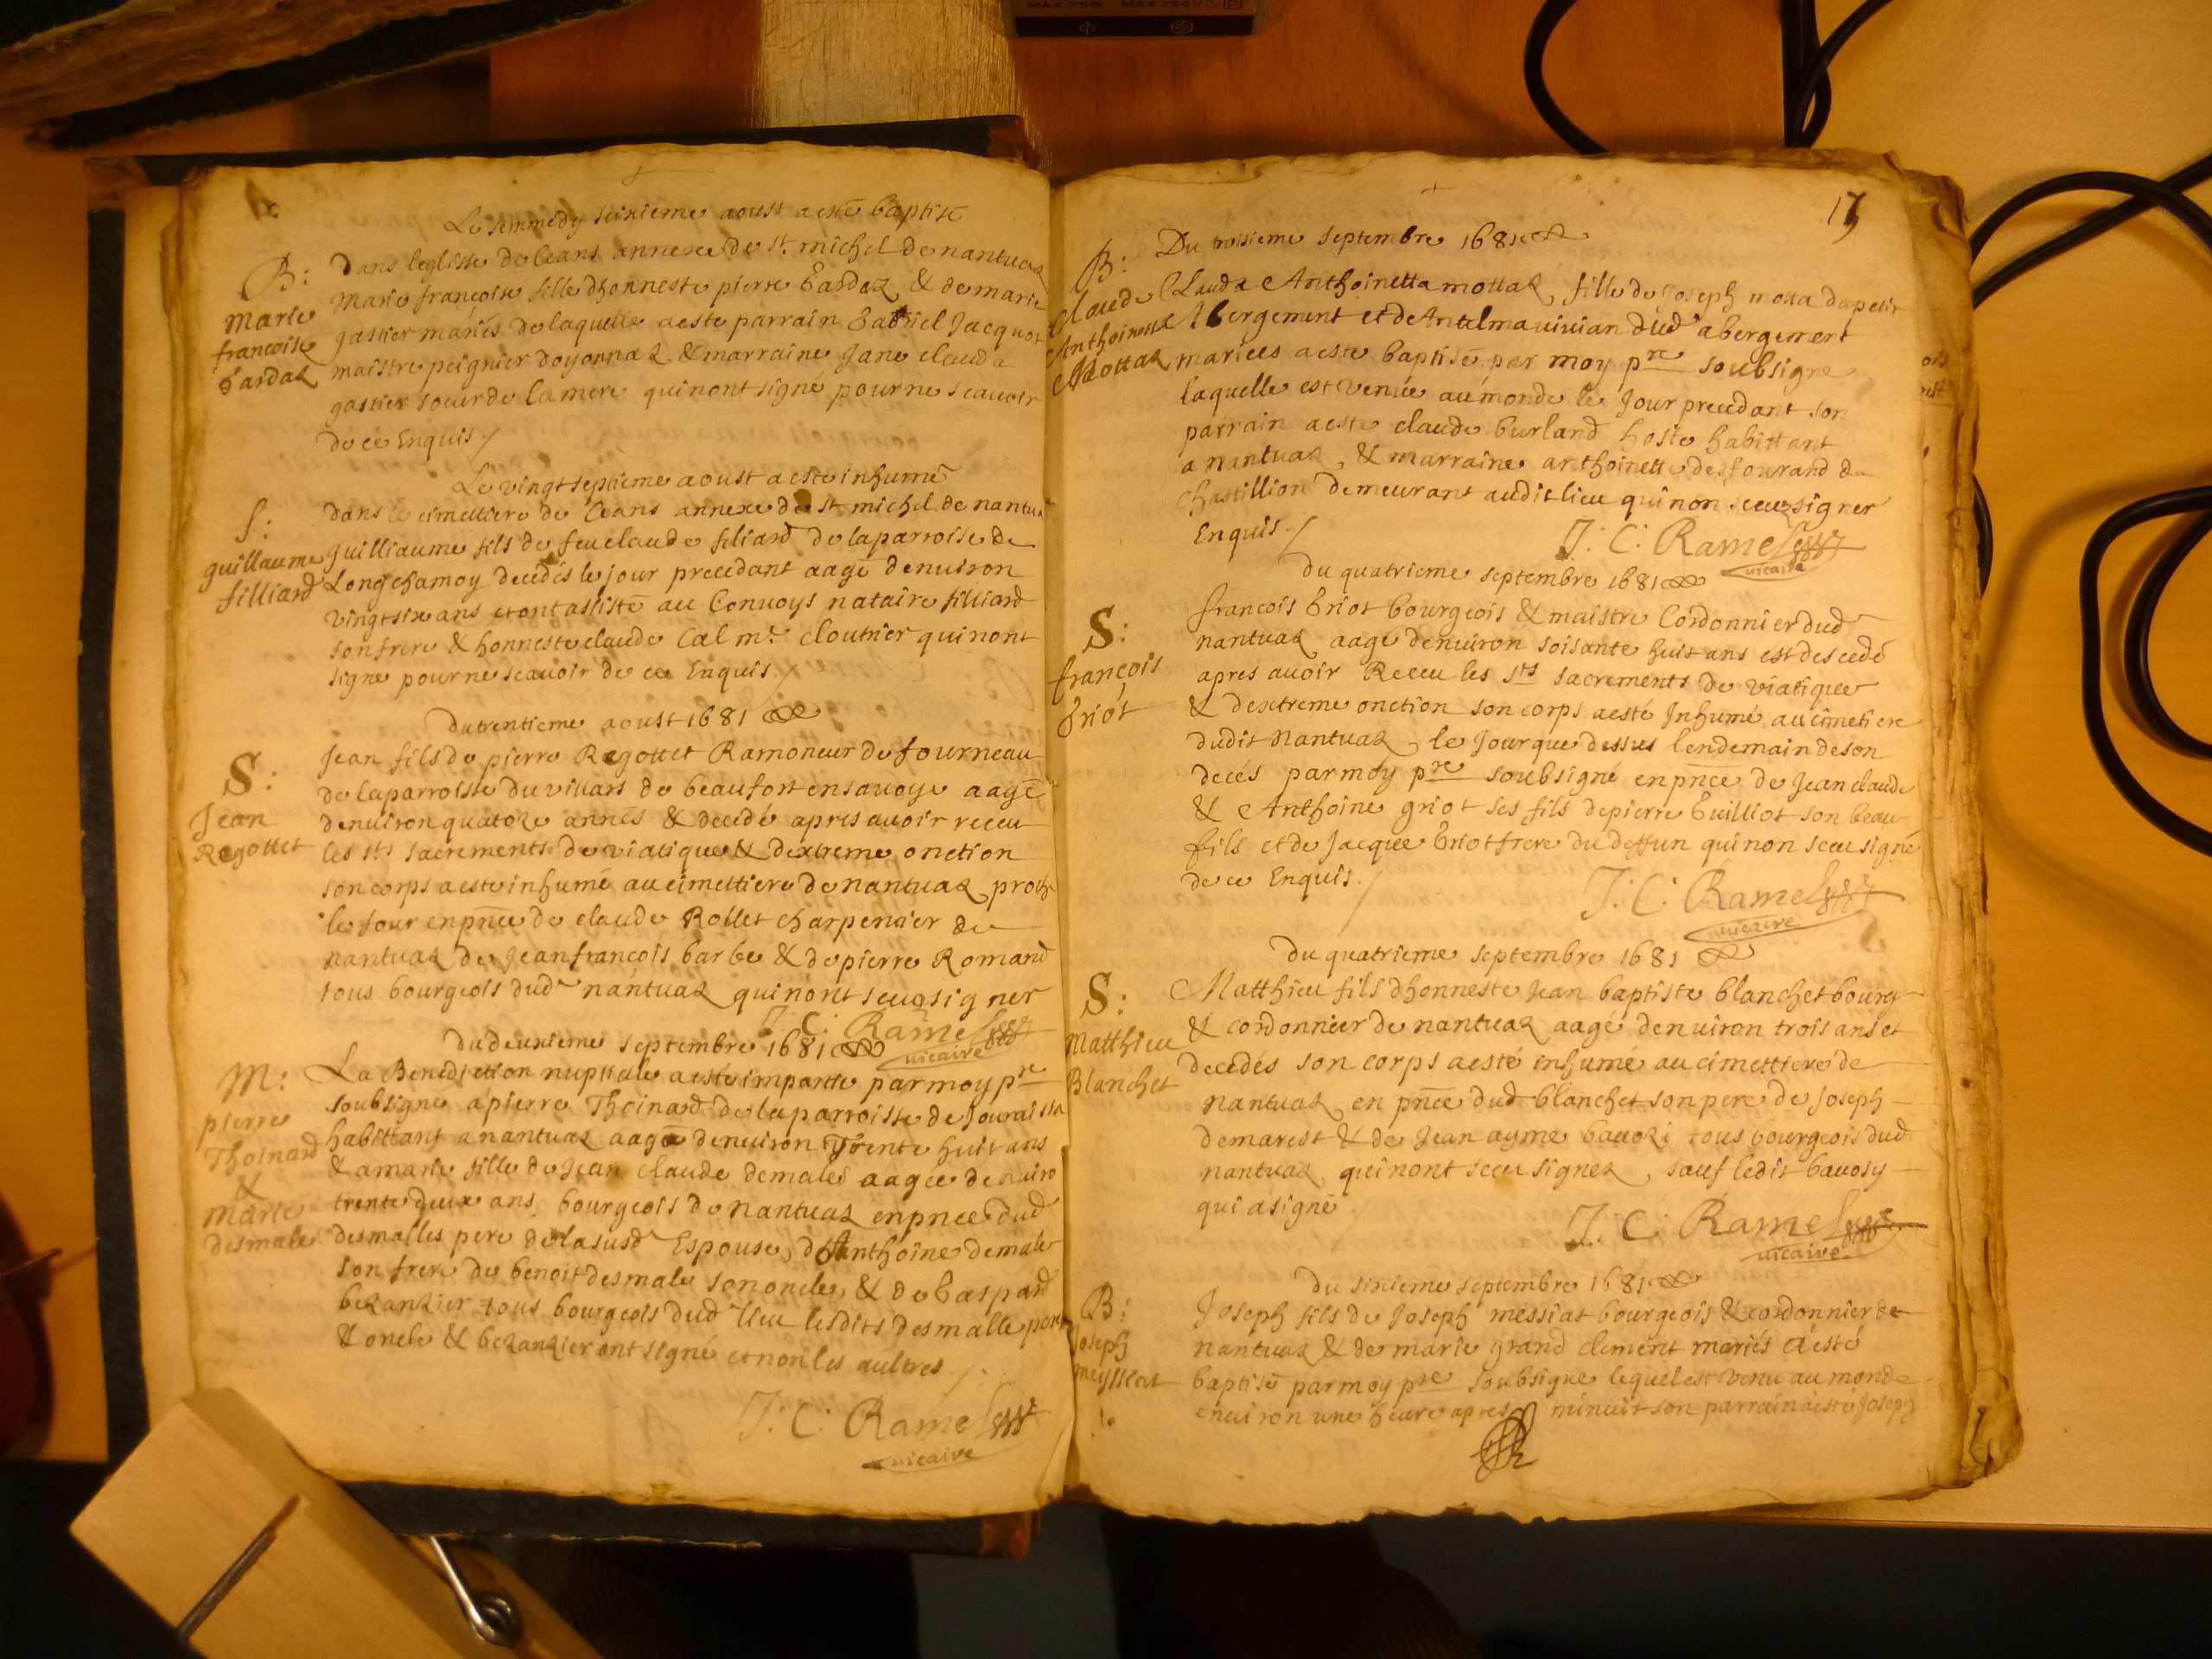 Le semmedy seixieme aoust a esté baptisé
B:
Marie
francoise
Gardaz
Dans leglisse de Ceans annexe de st michel de nantuaz
Marie françoise fille dhonneste pierre Gardaz & de marie
gastier mariés de laquelle a este parrain Gabriel Jacquot
maistre peignier doyonnaz & marraine Jane clauda
gastier soeur de la mere qui nont signé pour ne scavoir
de ce Enquis /
Le vingt septieme aoust a este inhumé
S:
guillaume
filliard
dans le cimettiere de Ceans annexe de st michel de nantua
guilliaume fils de feu claude filiard de la parroise de
Longchamoy decedés le jour precedant aagé denuiron
vingt six ans et ont assisté au Conuoys nataire filliard
son frere & honneste claude Cal mre cloutrier qui nont
signe pour ne scavoir de ce Enquis /
Du trentieme aoust 1681
S:
Jean
Ragottet
Jean fils de pierre Ragottet Ramoneur de fourneau
de la parroisse du villars de beaufort en sauoye aagé
denuiron quatorze annés & decedé apres auoir receu
les sts sacrements de viatique & dextreme onction
son corps a este inhumé au cimettiere de nantuaz proche
le four en pnce de claude Rollet charpentier de
nantuaz de Jean françois barbe & de pierre Romand
tous bourgeois dud nantuaz qui nont sceu signer
J: C: Ramel
vicaire
du deuxieme septembre 1681
M:
pierre
Thoinard
&
Marie
desmale
La Benediction nuptiale a esté impartie par moy pre
soubsigne a pierre Thoinard de la parroisse de Jouraissa
habittant a nantuaz aagé denuiron trente huit ans
& a marie fille de Jean claude demales aagée denuiro
trente deux ans, bourgeois de nantuaz en pnce dud
desmalles pere de la susd Espouse, dAnthoine demale
son frere de benoit desmale son oncle, & de Gaspard
bezanzier tous bourgeois dud lieu lesdits desmalle pere
& oncle & bezanzier ont signé et non les aultres /.
J: C: Ramel
vicaire
17
Du troisieme septembre 1681
B:
Claude
Anthoinette
Mottaz
Clauda Anthoinetta mottaz, fille de Joseph motta du petit
Abergement et de Antelma vivian dud abergement
mariees a este baptisé par moy pre soubsigne
laquelle est venue au monde le Jour precedant son
parrain a este claude burland hoste habittant
a nantuaz, & marraine anthoinette desfourand de
chastillion demeurant audit lieu qui non sceu signer
Enquis /
J: C: Ramel
vicaire
Du quatrieme septembre 1681
S:
françois
Griot
francois Griot bourgeois & maistre Cordonnier dud
nantuaz aagé denuiron soisante huit ans est descedé
apres auoir Receu les sts sacrements de viatique
& dextreme onction son corps a esté Inhumé au cimetiere
dudit nantuaz, le Jour que dessus lendemain de son
decés par moy pre soubsigné en pnce de Jean claude
& Anthoine griot ses fils de pierre Guilliot son beau
fils et de Jacque Griot frere du deffun qui non sceu signé
de ce Enquis. /
J: C: Ramel
vicaire
Du quatrieme septembre 1681
S:
Matthieu
Blanchet
Matthieu fils dhonneste Jean baptiste blanchet bourg
& cordonnier de nantuaz aagé denuiron trois ans et
decedés son corps a esté inhumé au cimettiere de
nantuaz en pnce dud blanchet son pere de Joseph
demarest & de Jean ayme bauozi tous bourgeois dud
nantuaz, qui nont sceu signez, sauf ledit bauosy
qui a signé
J: C: Ramel
vicaire
Du sixieme septembre 1681
B:
Joseph
meyssiat
Joseph fils de Joseph messiat bourgeois & cordonnier de
nantuaz & de marie grand clement mariés a esté
baptisé par moy pre soubsigne lequel est venu au monde
enuiron une heure apres minuit son parrain a esté Joseph